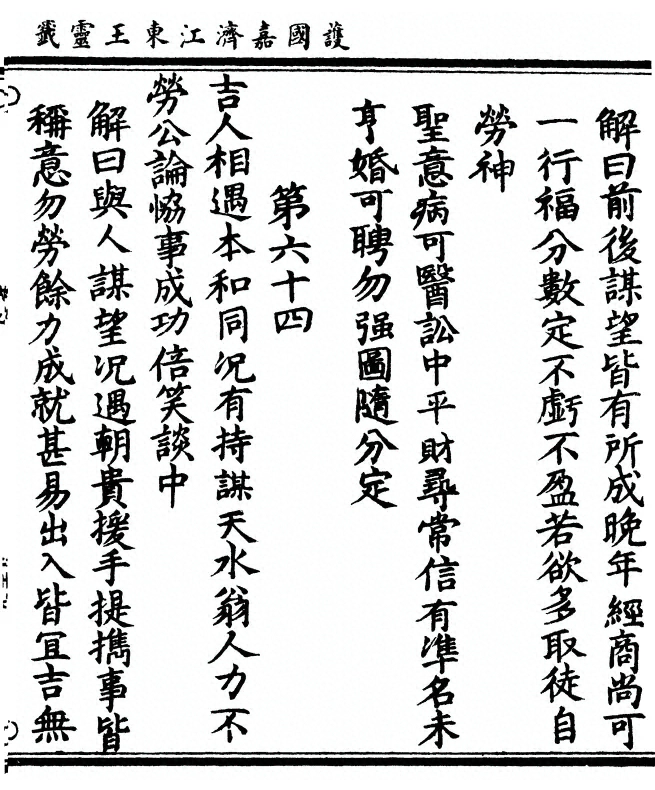 護國嘉濟江東王靈籤
解曰前後謀望皆有所成晚年經商尚可
一行福分數定不虧不盈若欲多取徒自
勞神
聖意病可醫訟中平財尋常信有準名未
亨婚可聘勿强圖隨分定
第六十四
吉人相遇本和同况有持謀天水翁人力不
勞公論協事成功倍笑談中
解曰與人謀望况遇朝貴援手提攜事皆
稱意勿勞餘力成就甚易出入皆宜吉無